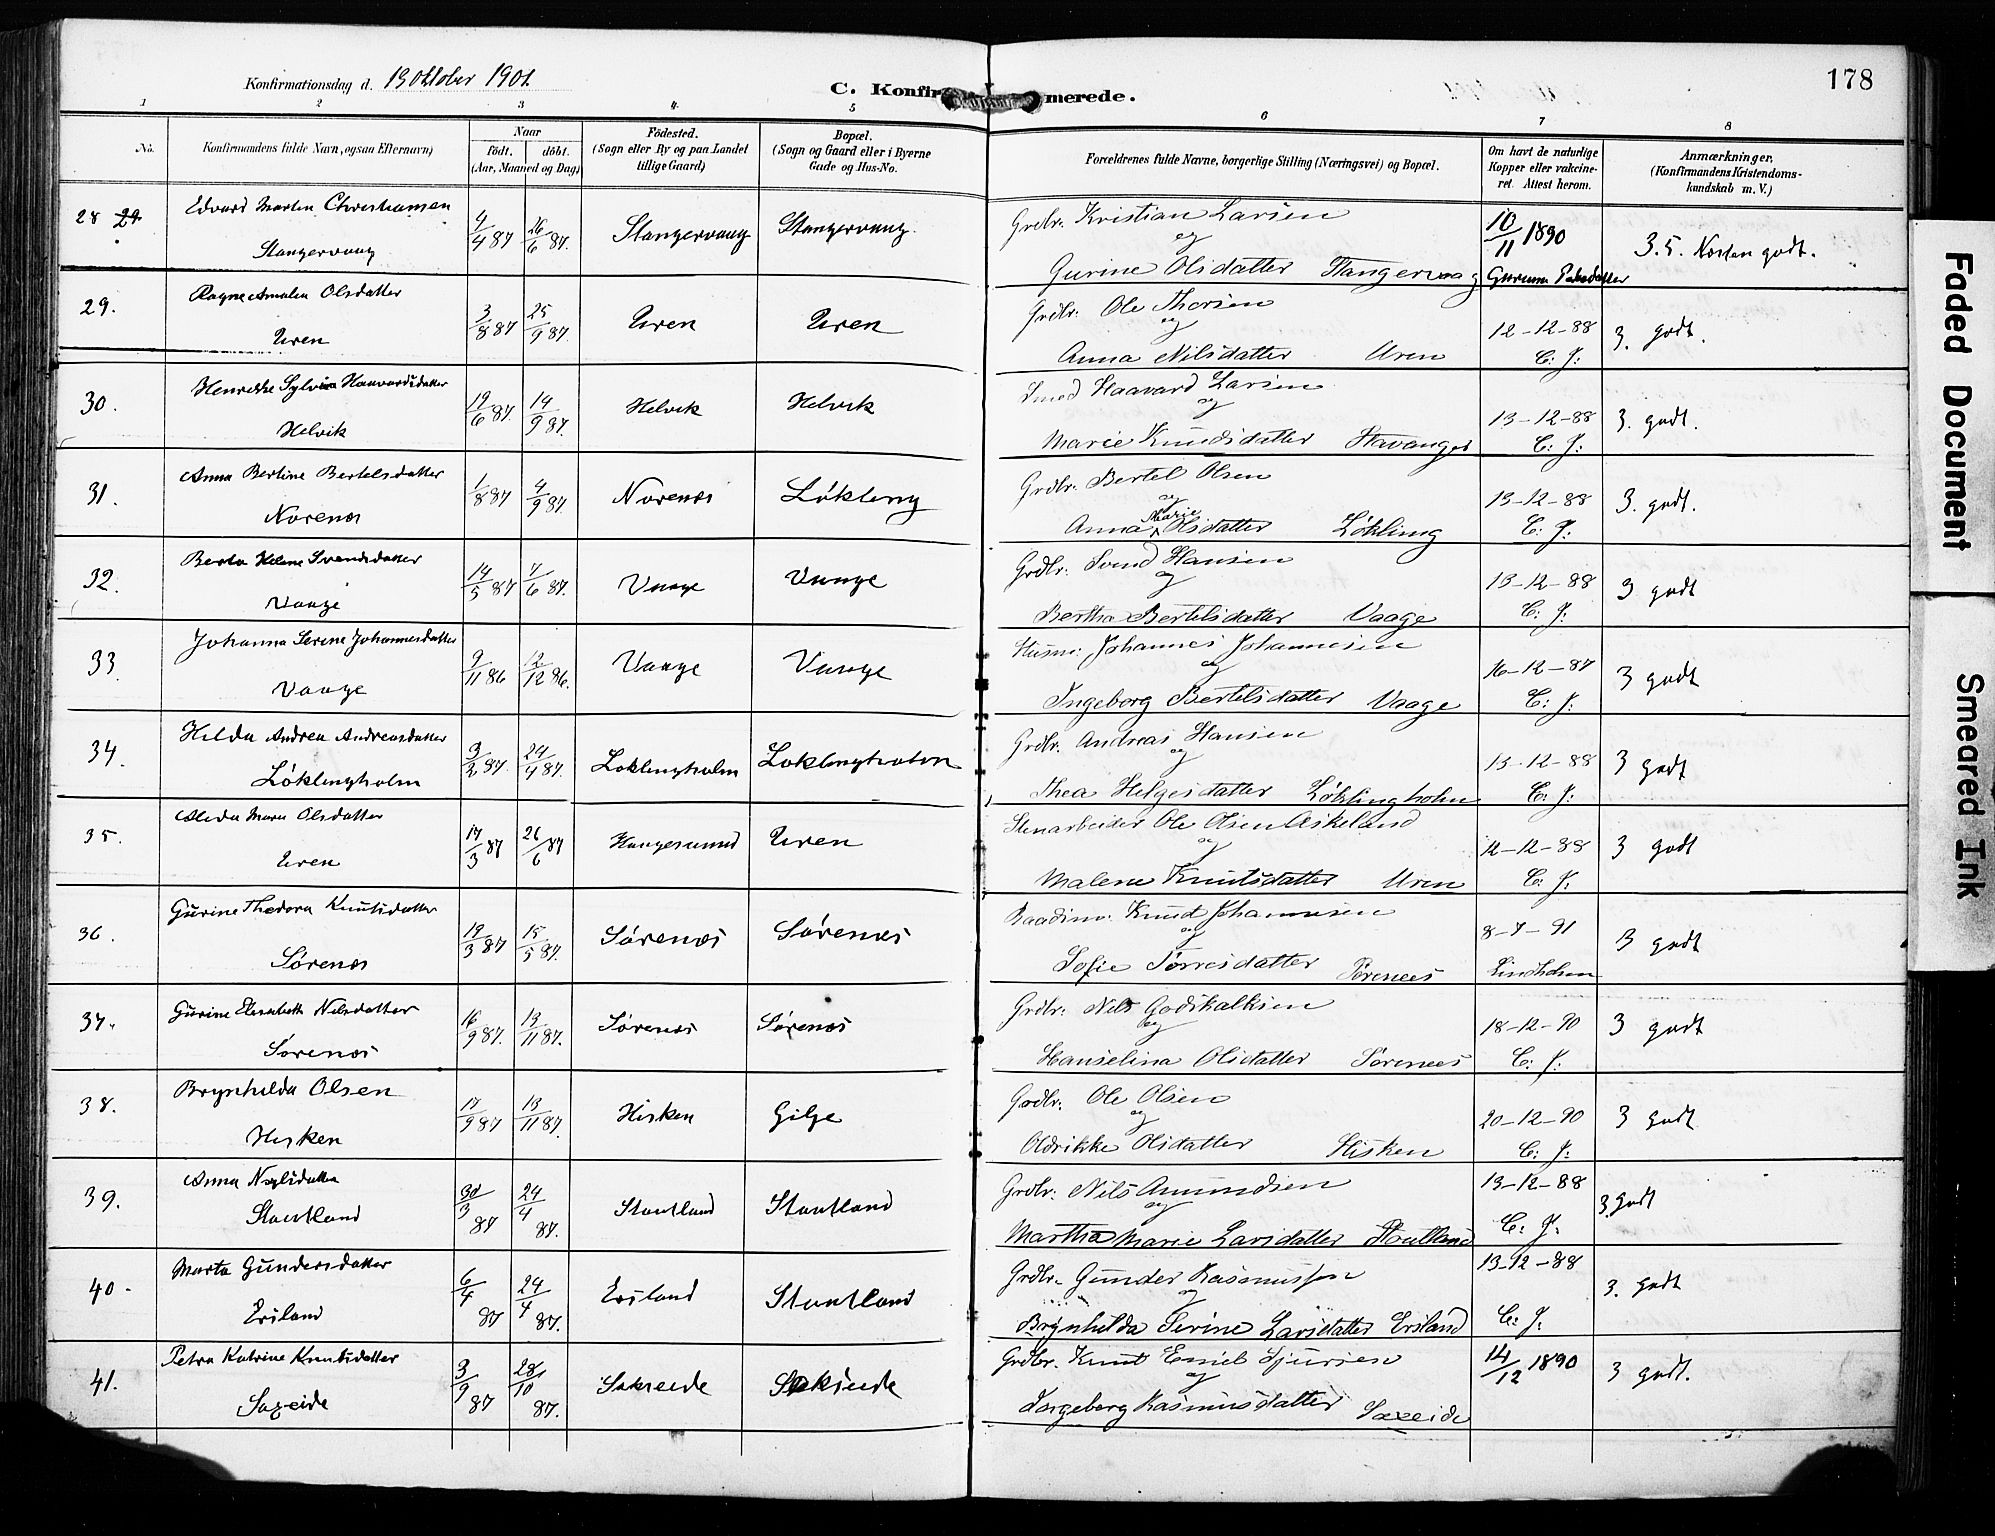 Konfirmationsdag d. 13 Oktober 1901.
C. Konfirmerede.
178
1 2 3 4 5 6 7 8
No.
Konfirmandens fulde Navn, ogsaa Efternavn)
Naar
födt. döbt.
(Aar, Maaned og Dag)
Födested.
(Sogn eller By og paa Landet
tillige Gaard)
Bopæl.
(Sogn og Gaard eller i Byerne
Gade og Hus-No.
Forældrenes fulde Navne, borgerlige Stilling (Næringsvei) og Bopæl.
Om havt de naturlige
Kopper eller vakcine-
ret. Attest herom.
Anmærkninger,
(Konfirmandens Kristendoms-
kundskab m. V.)
28 Edvard Martin Christiansen 4/4 87 26/6 87. Stangervaag Stangervaag. Grdbr. Kristian Larsen 10/11 1890 3.5. Næsten godt.
Stangervaag og
Gurine Olsdatter Stangervaag
29. Ragne Amalia Olsdatter 3/8 87 25/9 87. Uren Uren Grdbr. Ole Thorsen 12-12-88 3. godt.
Uren og
Anna Nilsdatter Uren C. J:
30. Henrikke Sylvia Haavardsdatter 19/6 87. 14/9 87. Helvik Helvik Smed Haavard Larsen 13-12-88 3. godt.
Helvik og
Marie Knudsdatter Stavanger C: J:
31. Anna Bertine Bertelsdatter 1/8 87 4/9 87. Norenæs Løkling Grdbr. Bertel Olsen 13-12-88 3. godt.
Norenæs og
Anna Marie Olsdatter Løkling C. J:
32. Berta Helene Svendsdatter 14/5 87 7/6 87. Vaage Vaage Grdbr. Svend Hansen 13-12-88 3 godt
Vaage og
Bertha Bertelsdatter Vaage C: J:
33. Johanna Serine Johannesdatter 9/11 86 12/12 86. Vaage Vaage Husm: Johannes Johannesen 16-12-87 3 godt
Vaage og
Ingeborg Bertelsdatter Vaage C: J:
34. Hilda Andrea Andreasdatter 3/2 87. 24/4 87. Løklingholm Løklingholm Grdbr. Andreas Hansen 13-12-88 3 godt
Løklingholm og
Thea Helgesdatter Løklingholm C: J:
35. Alida Maria Olsdatter 17/3 87 26/6 87 Haugesund Uren Stenarbeider Ole Olsen Askeland 12-12-88 3 godt
Uren og
Malene Knutsdatter Uren C: J:
36. Gurine Thedora Knutsdatter 19/3 87 15/5 87. Sørenæs Sørenæs Knud Johannesen 8-7-91 3 godt
Sørenæs og
Sofie Tørresdatter Sørenæs Lindholm
37. Gurine Elisabeth Nilsdatter 16/9 87. 13/11 87. Sørenæs Sørenæs Grdbr: Nils Godskalksen 18-12-90 3 godt
Sørenæs og
Hanselina Olsdatter Sørenæs C: J:
38. Brynhilda Olsen 17/9 87 13/11 87. Hisken Gilje Grdbr: Ole Olsen 20-12-90 3 godt
Hisken og
Oldrikke Olsdatter Hisken C: J:
39. Anna Nilsdatter 30/3 87 24/4 87. Stautland Stautland Grdbr: Nils Amundsen 13-12-88 3. godt
Stautland og
Martha Marie Larsdatter Stautland C: J:
40. Marta Gundersdatter 6/4 87 24/4 87. Ersland Stautland Grdbr. Gunder Rasmussen 13-12-88 3. godt
Ersland og
Brynhilda Serine Larsdatter Ersland C: J:
41. Petra Katrine Knutsdatter 3/9 87 28/10 87. Sakseide Sakseide Grdbr. Knut Emiel Sjursen 14/12 1890 3 godt.
Saxeide og
Ingeborg Rasmusdatter Saxeide
Faded Document
Smeared Ink